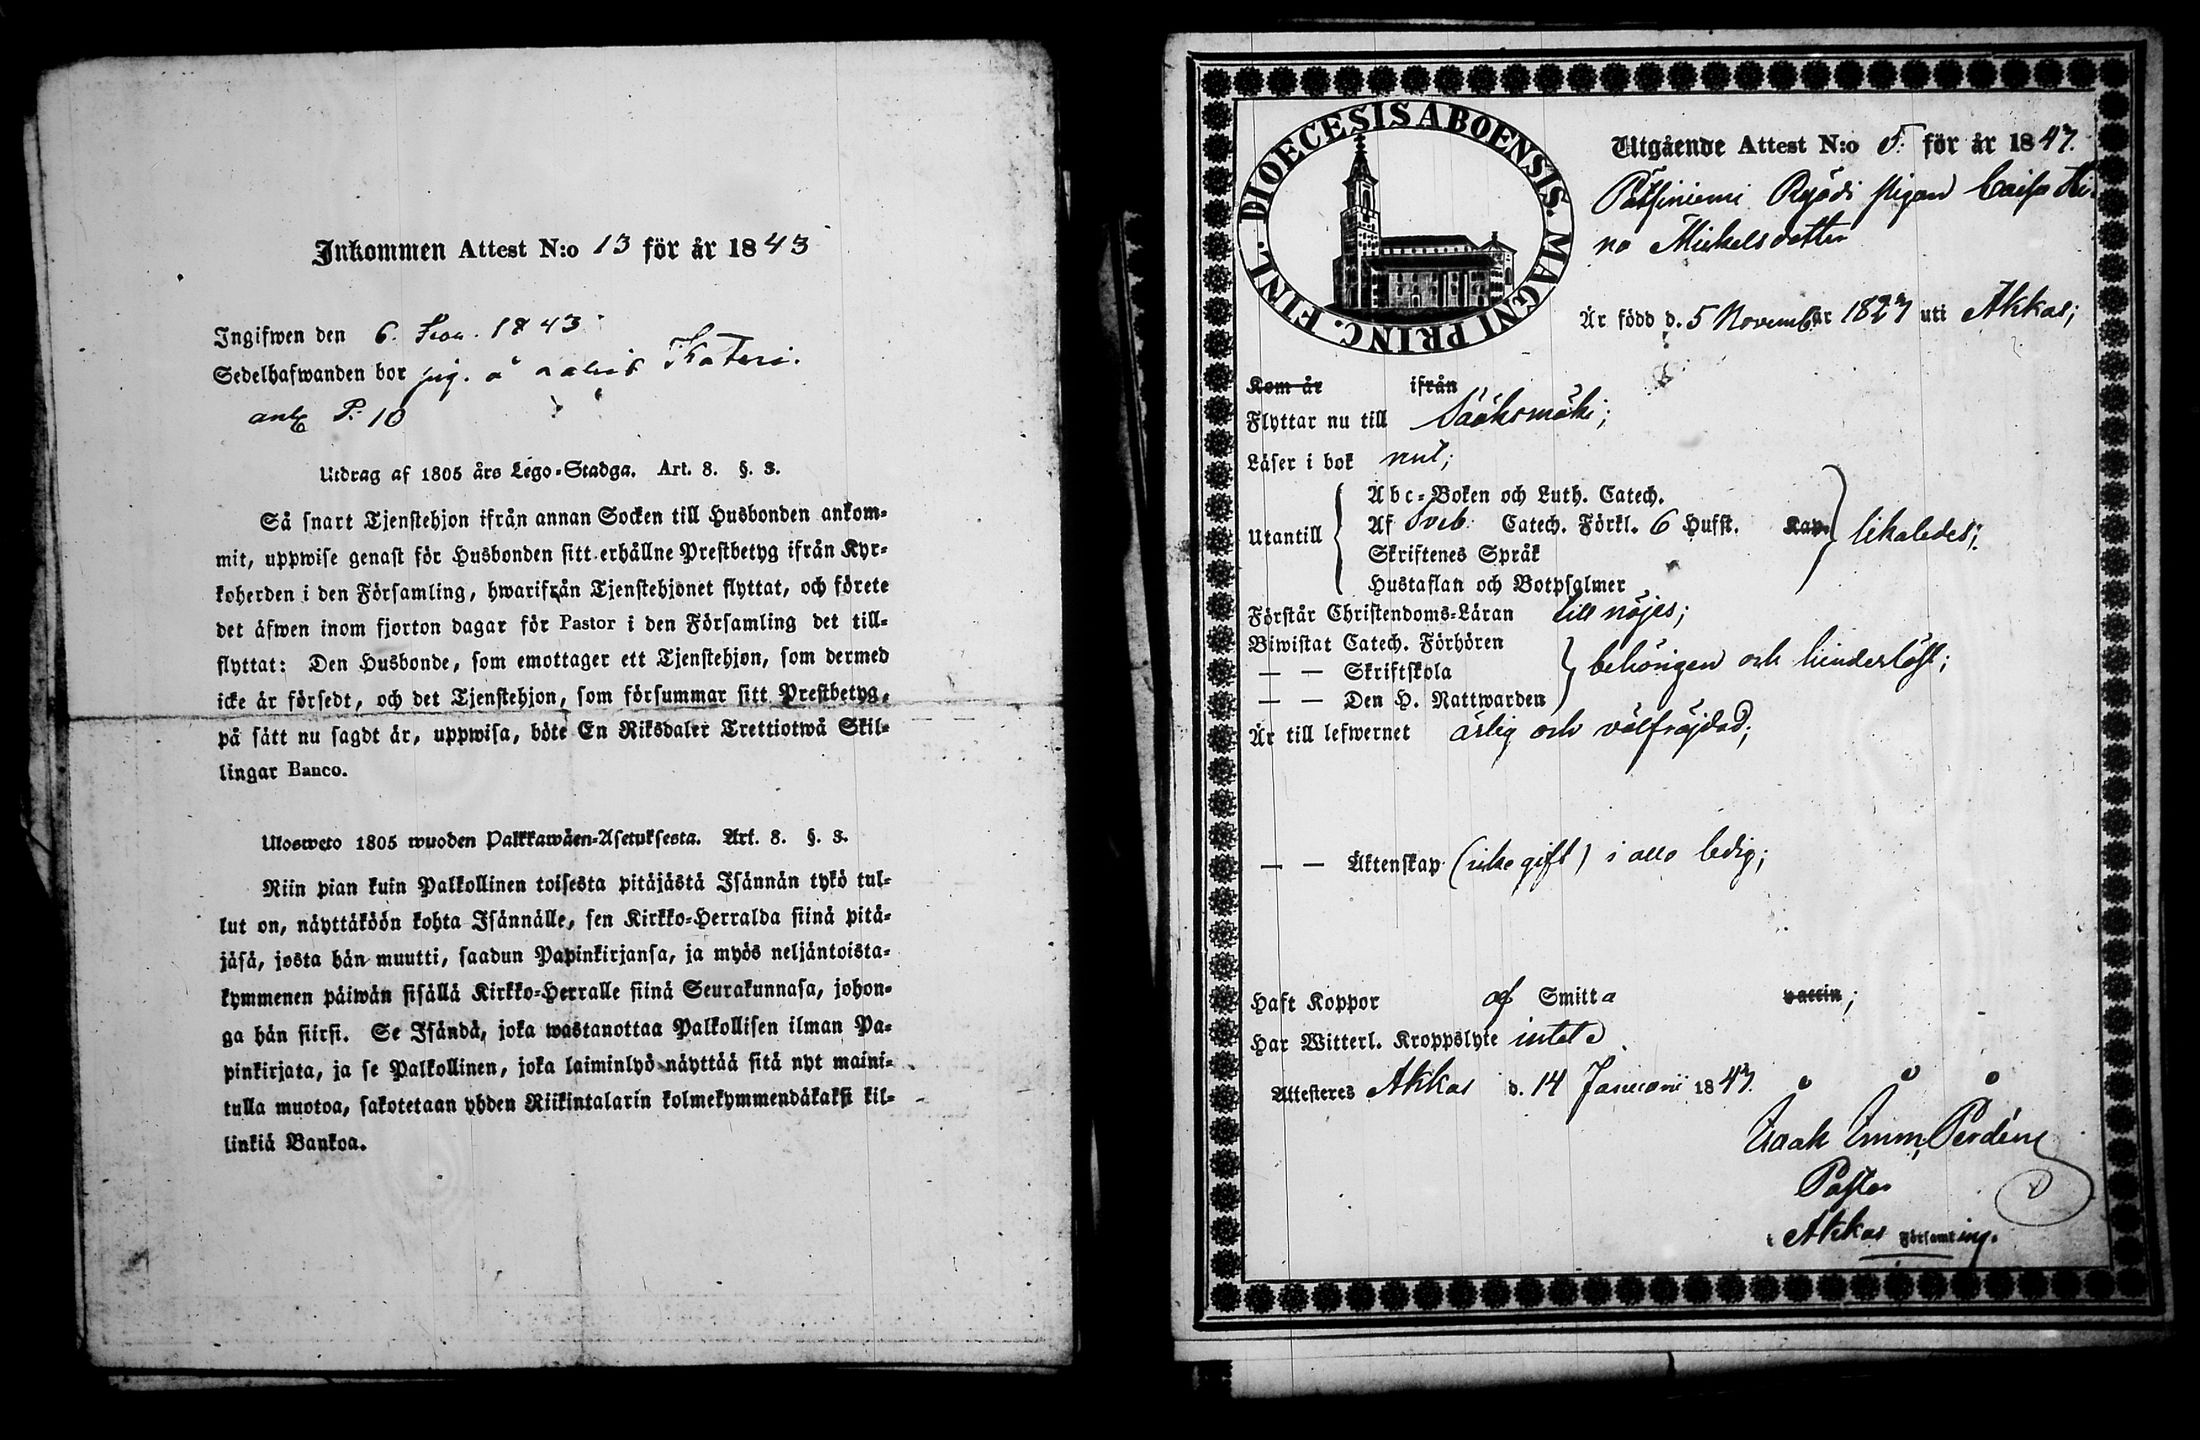 Inkommen Attest N:o 13 för år 1843
Ingifwen den 6. 1843
Sedelhafwanden bor pig. å
P: 10
Utdrag af 1805 års Lego-Stadga. Art. 8. §. 3.
Så snart Tjenstehjon ifrån annan Socken till Husbonden ankom-
mit, uppwise genast för Husbonden sitt erhållne Prestbetyg ifrån Kyr-
koherden i den Församling, hwarifrån Tjenstehjonet flyttat, och förete
det äfwen inom fjorton dagar för Pastor i den Församling det till-
flyttat: Den Husbonde, som emottager ett Tjenstehjon, som dermed
icke är försedt, och det Tjenstehjon, som försummar sitt Prestbetyg,
på sätt nu sagdt är, uppwisa, böte En Riksdaler Trettiotwå Skil-
lingar Banco.
Ulosweto 1805 wuoden Palkkawäen-Asetuksesta. Art. 8. §. 3.
Niin pian kuin Palkollinen toisesta pitäjästä Isännän tykö tul-
lut on, näyttäköön kohta Isännälle, sen Kirkko-Herralda siinä pitä-
jäsä, josta hän muutti, saadun Papinkirjansa, ja myös neljäntoista-
kymmenen päiwän sisällä Kirkko-Herralle siinä Seurakunnasa, johon-
ga hän siirsi. Se Isändä, joka wastanottaa Palkollisen ilman Pa-
pinkirjata, ja se Palkollinen, joka laiminlyö näyttää sitä nyt maini-
tulla muotoa, sakotetaan yhden Riikintalarin kolmekymmendäkaksi kil-
linkiä Bankoa.
DIOECESIS ABOENSIS. MAGNI PRINC. FINL.
Utgående Attest N:o 5. för år 1843.
pigan Caisa Sti-
na Mickelsdotter
Är född d. 5 November 1823 uti Akkas;
Kom år ifrån
Flyttar nu till Sääksmäki;
Läser i bok nul;
Abc-Boken och Luth. Catech.
Utantill Af Sveb. Catech. Förkl. 6 Hufst. Kap. likaledes;
Skriftenes Språk
Hustaflan och Botpsalmer
Förstår Christendoms-Läran till nöjes;
Biwistat Catech. Förhören
— — Skriftskola behörigen och hinderlöst;
— — Den H. Nattwarden
Är till lefwernet ärlig och välfräjdad;
— — Äktenskap (icke gift) i allo ledig;
Haft Koppor af Smitta vaccin;
Har Witterl. Kroppslyte intet
Attesteres Akkas d. 14 Januarii 1843.
Isaak Imm, Perdén
Pastor
i Akkas Församling.